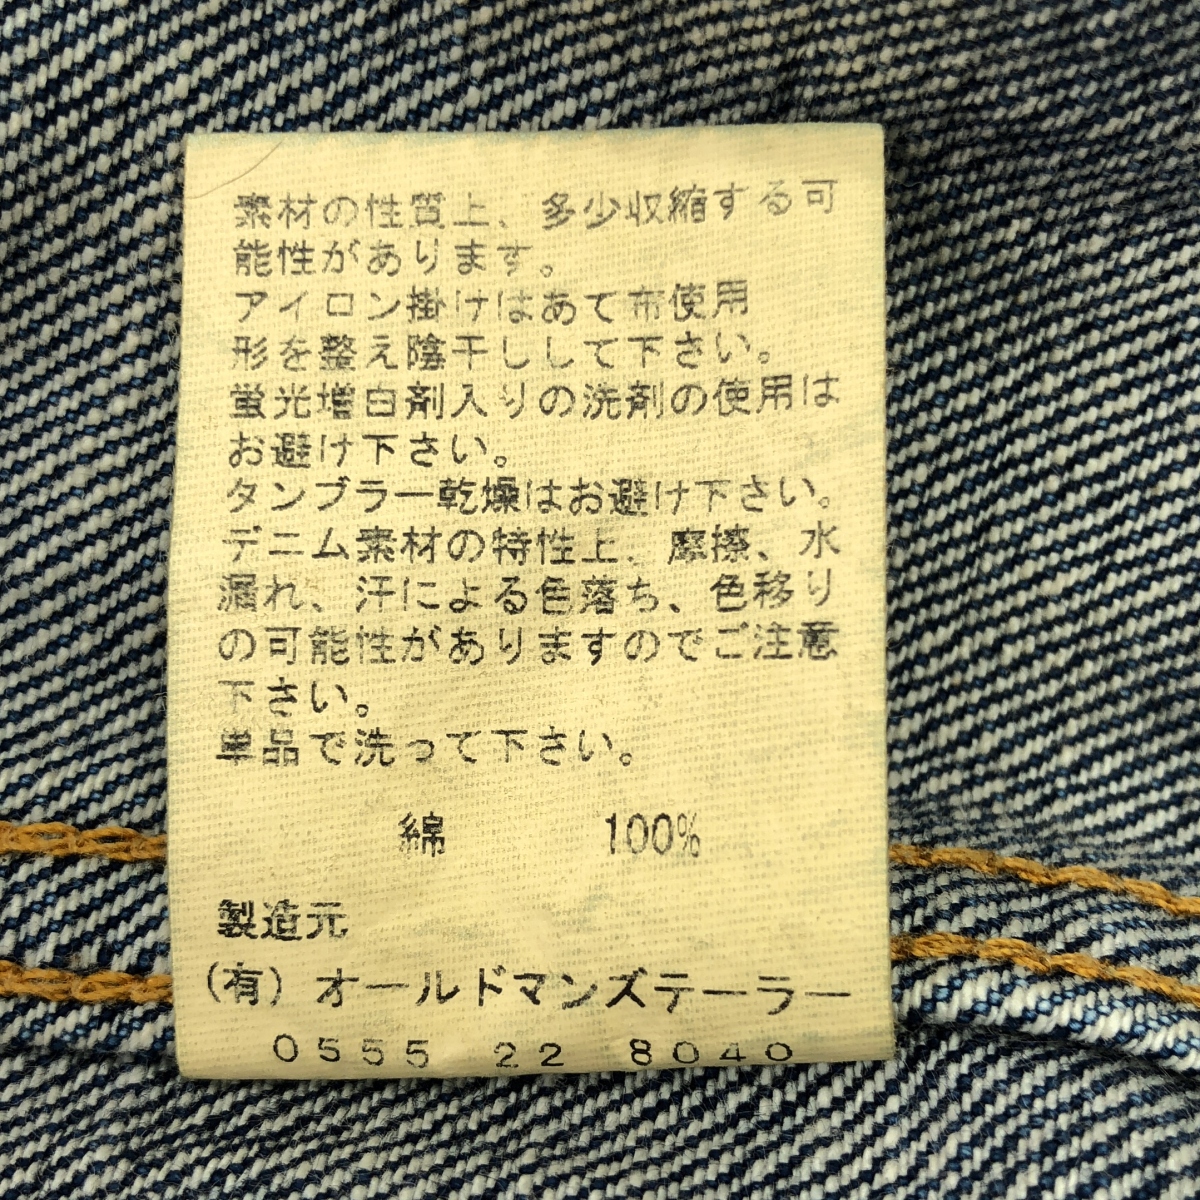 素材の性質上、多少収縮する可
能性があります。
アイロン掛けはあて布使用
形を整え陰干しして下さい。
蛍光増白剤入りの洗剤の使用は
お避け下さい。
タンブラー乾燥はお避け下さい。
デニム素材の特性上、摩擦、水
漏れ、汗による色落ち、色移り
の可能性がありますのでご注意
下さい。
単品で洗って下さい。
綿 100%
製造元
(有)オールドマンズテーラー
0555 22 8040